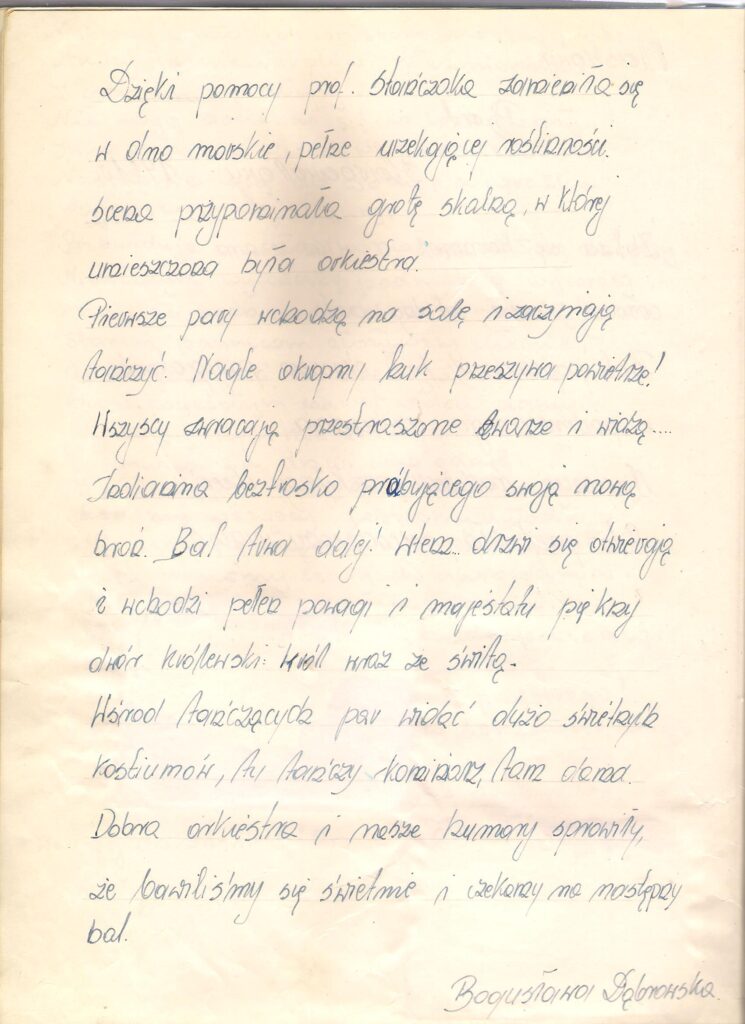 Dzięki pomocy prof. Starczaka zamieniła się
w dno morskie, pełne urzekającej roślinności.
Scena przypominała grotę skalną, w której
umieszczona była orkiestra.
Pierwsze pary wchodzą na salę i zaczynają
tańczyć. Nagle okropny huk przeszywa powietrze!
Wszyscy zwracają przestraszone twarze i widzą....
Indianina beztrosko próbującego swoją nową
broń. Bal trwa dalej! Wtem.. drzwi się otwierają
i wchodzi pełen powagi i majestatu piękny
dwór królewski: król wraz ze świtą.
Wśród tańczących par widać dużo świetnych
kostiumów, tu tańczy kominiarz, tam dama.
Dobra orkiestra i nasze humory sprawiły,
że bawiliśmy się świetnie i czekamy na następny
bal.
Bogusława Dąbrowska